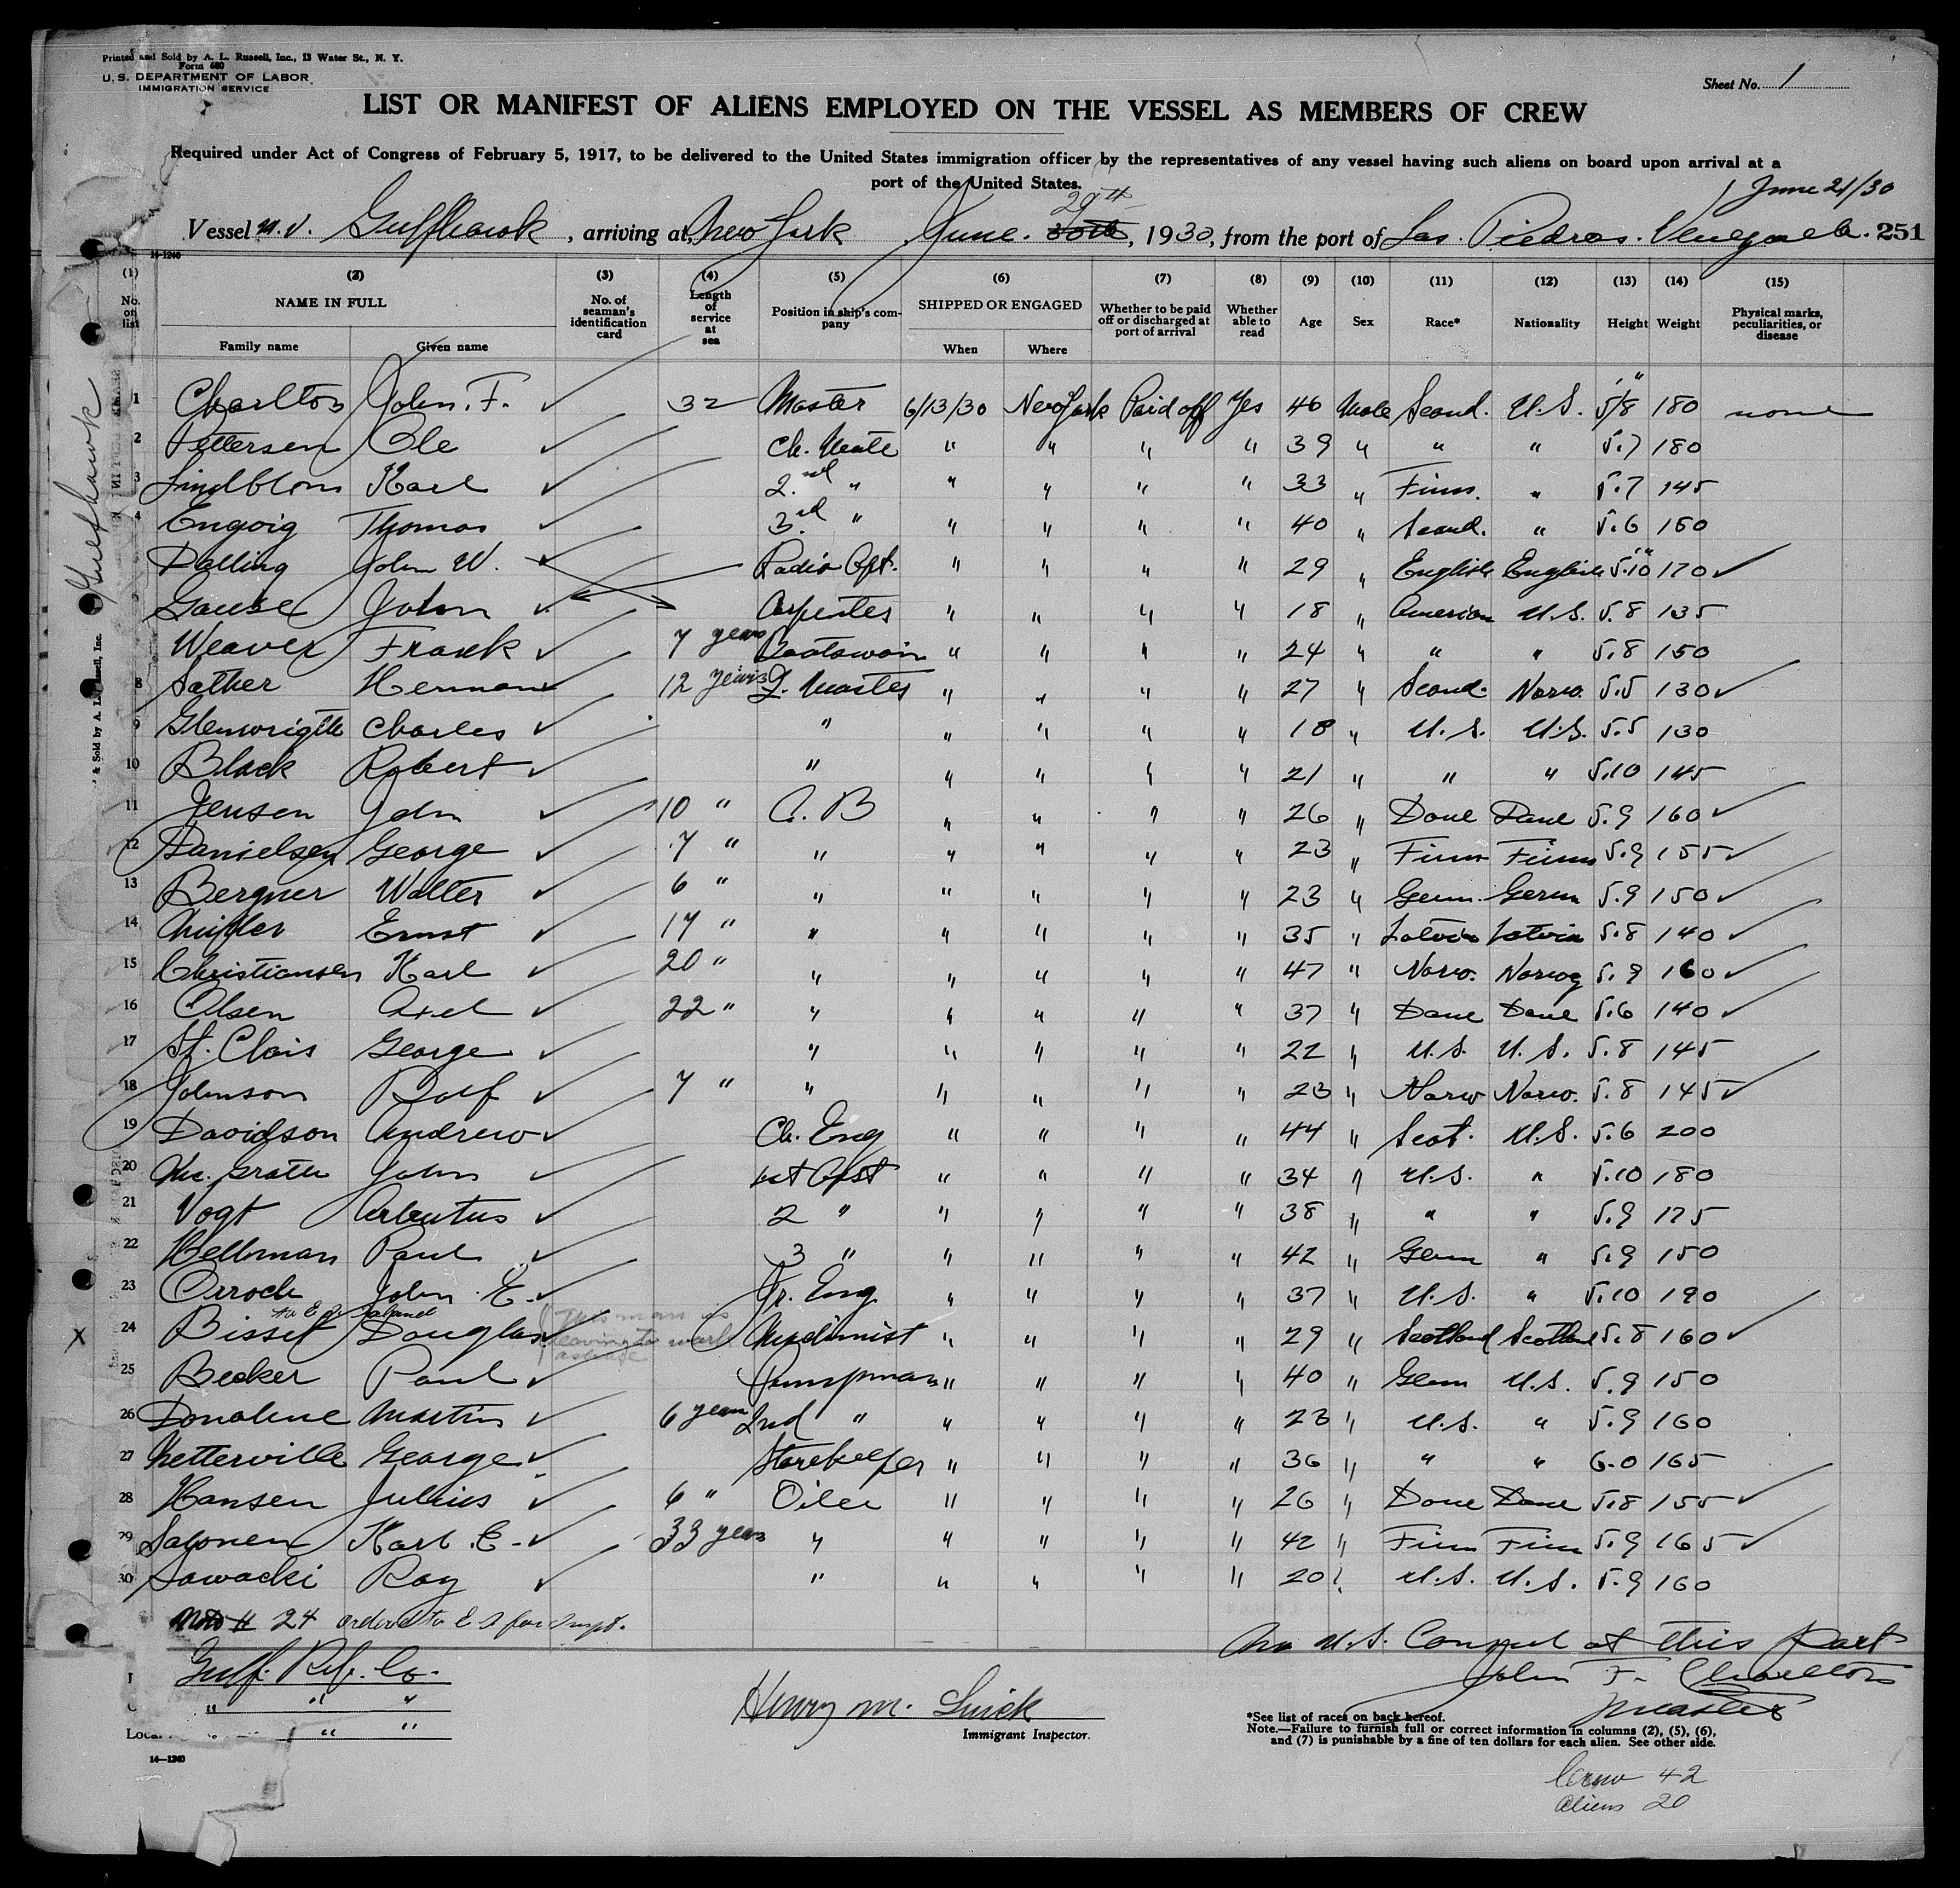 Printed and Sold by A. L. Russell, Inc., 13 Water St., N. Y.
Form 680
U. S. DEPARTMENT OF LABOR
IMMIGRATION SERVICE
Sheet No. 1
LIST OR MANIFEST OF ALIENS EMPLOYED ON THE VESSEL AS MEMBERS OF CREW
Required under Act of Congress of February 5, 1917, to be delivered to the United States immigration officer by the representatives of any vessel having such aliens on board upon arrival at a
port of the United States.
June 21/30
29th
Vessel M.V. Gulfhawk, arriving at New York June 30th, 1930, from the port of Las Piedras. Venezuela. 251
14-1240
(1) (2) (3) (4) (5) (6) (7) (8) (9) (10) (11) (12) (13) (14) (15)
No. on list NAME IN FULL No. of seaman's identification card Length of service at sea Position in ship's company SHIPPED OR ENGAGED Whether to be paid off or discharged at port of arrival Whether able to read Age Sex Race* Nationality Height Weight Physical marks, peculiarities, or disease
Family name Given name When Where
Gulfhawk
1 Charlton John. F. 32 Master 6/13/30 New York Paid off Yes 46 Male Scand. U.S. 5'8" 180 none
2 Pettersen Ole Ch. Mate " " " " 39 " " " 5.7 180
3 Lindblom Karl 2.nd " " " " " 33 " Finn. " 5.7 145
4 Engoig Thomas 3.rd " " " " " 40 " Scand. " 5.6 150
Dalling John W. Radio Opt. " " " " 29 " English English 5'.10" 170
Gause John Carpenter " " " " 18 " American U.S. 5.8 135
Weaver Frank 7 years Boatswain " " " " 24 " " " 5.8 150
8 Sather Herman 12 years Q. Master " " " " 27 " Scand. Norw. 5.5 130
9 Glenwright Charles " " " " " 18 " U.S. U.S. 5.5 130
10 Black Robert " " " " " 21 " " " 5.10 145
11 Jensen John 10 " A. B " " " " 26 " Dane Dane 5.9 160
12 Danielsen George 7 " " " " " " 23 " Finn Finn 5.9 155
13 Bergner Walter 6 " " " " " " 23 " Germ. Germ 5.9 150
14 Ernst 17 " " " " " " 35 " Latvia Latvia 5.8 140
15 Christiansen Karl 20 " " " " " " 47 " Norw. Norweg 5.9 160
16 Olsen Axel 22 " " " " " " 37 " Dane Dane 5.6 140
17 St. Clair George " " " " " 22 " U.S. U.S. 5.8 145
18 Johnson Rolf 7 " " " " " " 23 " Norw Norw. 5.8 145
19 Davidson Andrew Ch. Eng " " " " 44 " Scot. U.S. 5.6 200
20 Mc. Grath John 1st Asst " " " " 34 " U.S. " 5.10 180
21 Vogt Arbutus 2 " " " " " 38 " " " 5.9 175
22 Hellman Paul 3 " " " " " 42 " Germ " 5.9 150
23 Orrock John E. Jr. Eng. " " " " 37 " U.S. " 5.10 190
This man is
24 Bisset Douglas Machinist " " " " 29 " Scotland Scotland 5.8 160
X
25 Becker Paul Pumpman " " " " 40 " Germ U.S. 5.9 150
26 Donahue Martin 6 years 2nd " " " " " 23 " U.S. " 5.9 160
27 Netterville George Storekeeper " " " " 36 " " " 6.0 165
28 Hansen Julius 6 " Oiler " " " " 26 " Dane Dane 5.8 155
29 Salonen Karl. E. 33 years " " " " " 42 " Finn Finn 5.9 165
30 Sawacki Ray " " " " " 20 " U.S. U.S. 5.9 160
Note # 24 ordered to E I for Inspt.
No U.S. Consul at this Port
Gulf. Ref. Co.
" " "
" "
John F. Charlton
Master
Henry M. Quick
Immigrant Inspector.
*See list of races on back hereof.
Note.—Failure to furnish full or correct information in columns (2), (5), (6),
and (7) is punishable by a fine of ten dollars for each alien. See other side.
14—1240
Crew 42
Aliens 20